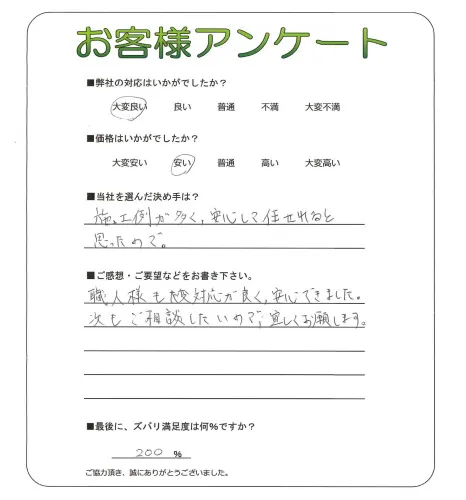 お客様アンケート
■弊社の対応はいかがでしたか？
大変良い 良い 普通 不満 大変不満
■価格はいかがでしたか？
大変安い 安い 普通 高い 大変高い
■当社を選んだ決め手は？
施工例が多く、安心して任せれると
思ったので。
■ご感想・ご要望などをお書き下さい。
職人様も大変対応が良く、安心できました。
次もご相談したいので、宜しくお願します。
■最後に、ズバリ満足度は何％ですか？
200 ％
ご協力頂き、誠にありがとうございました。